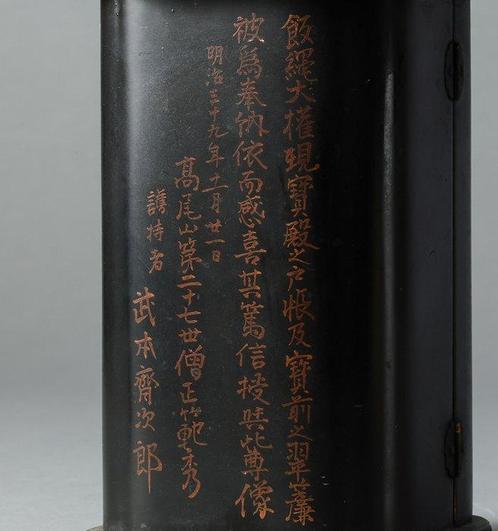 飯繩大權現寶殿之戸帳及寶前之翠簾
被爲奉納依而感喜其篤信授與此尊像
明治三十九年十一月廿一日
髙尾山第二十七世僧正範秀
護持者
武本齊次郎